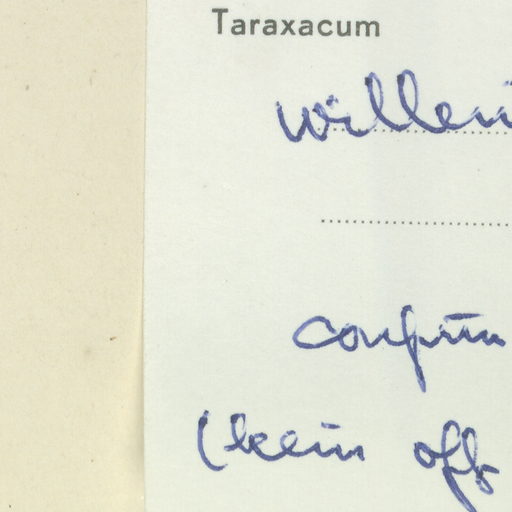 Taraxacum
willen
confirm
(kein off